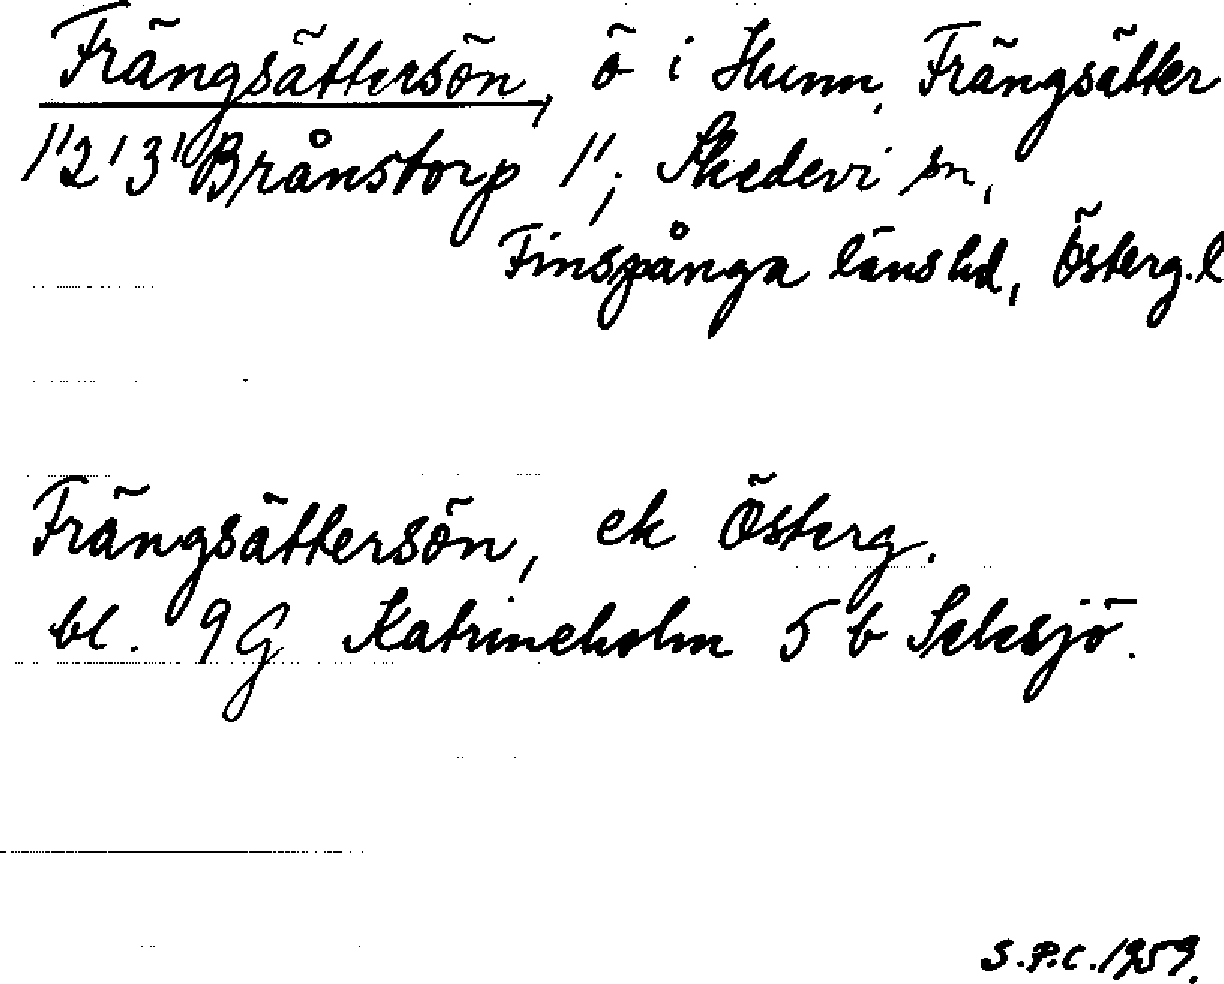 Frängsättersön, ö i Hunn, Frängsätter
1'2'3' Brånstorp 1'; Skedevi sn,
Finspånga länshd, Österg.l
Frängsättersön, ek Österg.
bl. 9G Katrineholm 5 b Selesjö.
S.P.C. 1959.